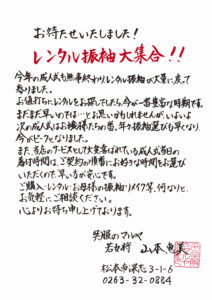 お待たせいたしました!
レンタル振袖大集合!!
今年の成人式も無事終わりレンタル振袖が大量に戻って
参りました。
お値打ちにレンタルをお探しでしたら、今が一番豊富な時期です。
まだまだ早いのでは…とお思いかもしれませんが、いよいよ
次の成人式はお嬢様たちの番。年々振袖選びも早くなり、
今がピークとなりました。
また、当店のサービスとして大変喜ばれている成人式当日の
着付時間は、ご契約の順番にお好きな時間をお選び
いただくので、早い方が安心です。
ご購入・レンタル・お母様の振袖・メイク等、何なりと、
お気軽にご相談ください。
心よりお待ち申し上げております。
笑服のマルヤ
若女将 山本恵美
松本市深志3-1-6
0263-32-0884